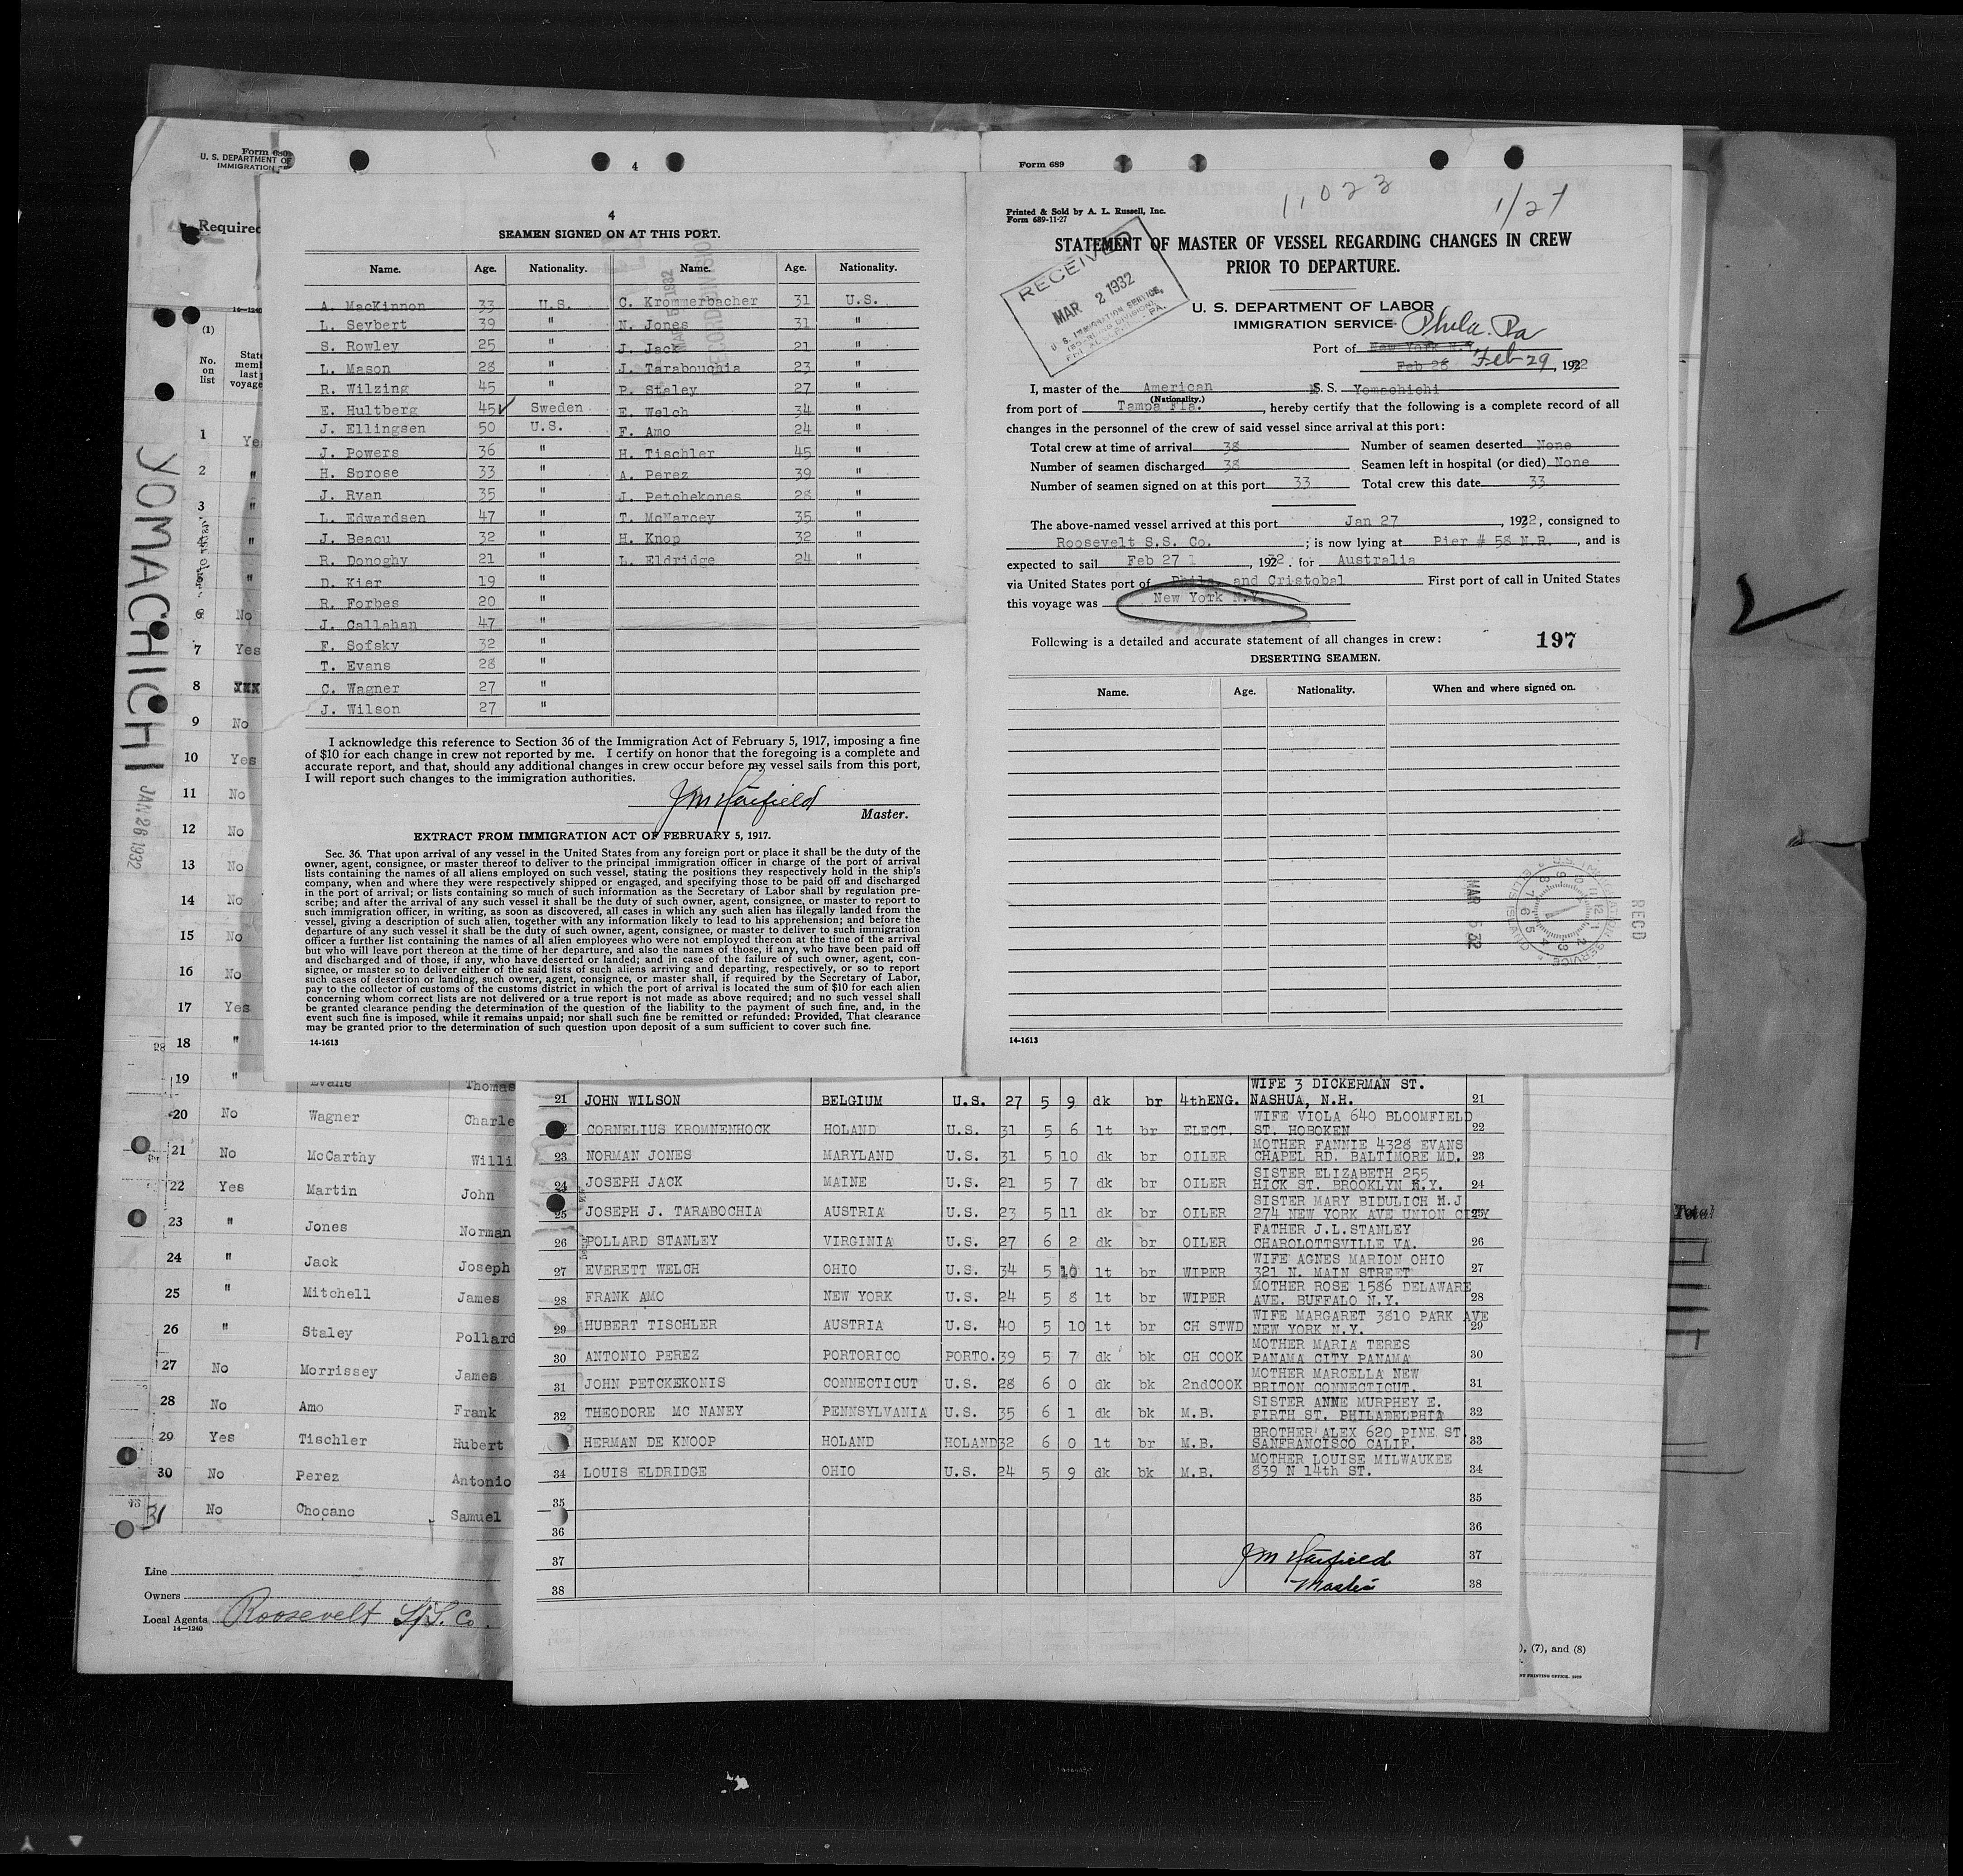 Form 689
U. S. DEPARTMENT OF
IMMIGRATION
Required
14—1240
(1)
No.
on
list
State
memb
last
voyage
YOMACHICHI
JAN 26 1932
1 Yes
2 "
3 "
4 "
5 "
6 No
7 Yes
8 XXX
9 No
10 Yes
11 No
12 No
13 No
14 No
15 No
16 No
17 Yes
18 "
19 " Evans Thomas
20 No Wagner Charle
21 No McCarthy Willi
22 Yes Martin John
23 " Jones Norman
24 " Jack Joseph
25 " Mitchell James
26 " Staley Pollard
27 No Morrissey James
28 No Amo Frank
29 Yes Tischler Hubert
30 No Perez Antonio
31 No Chocano Samuel
Line
Owners
Local Agents Roosevelt S.S. Co.
14—1240
4
4
SEAMEN SIGNED ON AT THIS PORT.
Name. Age. Nationality. Name. Age. Nationality.
A. MacKinnon 33 U.S. C. Krommerbacher 31 U.S.
L. Seybert 39 " N. Jones 31 "
S. Rowley 25 " J. Jack 21 "
L. Mason 28 " J. Tarabouchia 23 "
R. Wilzing 45 " P. Staley 27 "
E. Hultberg 45✓ Sweden E. Welch 34 "
J. Ellingsen 50 U.S. F. Amo 24 "
J. Powers 36 " H. Tischler 45 "
H. Sprose 33 " A. Perez 39 "
J. Ryan 35 " J. Petchekones 28 "
L. Edwardsen 47 " T. McNarcey 35 "
J. Beacu 32 " H. Knop 32 "
R. Donoghy 21 " L. Eldridge 24 "
D. Kier 19 "
R. Forbes 20 "
J. Callahan 47 "
F. Sofsky 32 "
T. Evans 28 "
C. Wagner 27 "
J. Wilson 27 "
I acknowledge this reference to Section 36 of the Immigration Act of February 5, 1917, imposing a fine
of $10 for each change in crew not reported by me. I certify on honor that the foregoing is a complete and
accurate report, and that, should any additional changes in crew occur before my vessel sails from this port,
I will report such changes to the immigration authorities.
Master.
EXTRACT FROM IMMIGRATION ACT OF FEBRUARY 5, 1917.
Sec. 36. That upon arrival of any vessel in the United States from any foreign port or place it shall be the duty of the
owner, agent, consignee, or master thereof to deliver to the principal immigration officer in charge of the port of arrival
lists containing the names of all aliens employed on such vessel, stating the positions they respectively hold in the ship's
company, when and where they were respectively shipped or engaged, and specifying those to be paid off and discharged
in the port of arrival; or lists containing so much of such information as the Secretary of Labor shall by regulation pre-
scribe; and after the arrival of any such vessel it shall be the duty of such owner, agent, consignee, or master to report to
such immigration officer, in writing, as soon as discovered, all cases in which any such alien has illegally landed from the
vessel, giving a description of such alien, together with any information likely to lead to his apprehension; and before the
departure of any such vessel it shall be the duty of such owner, agent, consignee, or master to deliver to such immigration
officer a further list containing the names of all alien employees who were not employed thereon at the time of the arrival
but who will leave port thereon at the time of her departure, and also the names of those, if any, who have been paid off
and discharged and of those, if any, who have deserted or landed; and in case of the failure of such owner, agent, con-
signee, or master so to deliver either of the said lists of such aliens arriving and departing, respectively, or so to report
such cases of desertion or landing, such owner, agent, consignee, or master shall, if required by the Secretary of Labor,
pay to the collector of customs of the customs district in which the port of arrival is located the sum of $10 for each alien
concerning whom correct lists are not delivered or a true report is not made as above required; and no such vessel shall
be granted clearance pending the determination of the question of the liability to the payment of such fine, and, in the
event such fine is imposed, while it remains unpaid; nor shall such fine be remitted or refunded: Provided, That clearance
may be granted prior to the determination of such question upon deposit of a sum sufficient to cover such fine.
14-1613
Form 689
11023
1/27
Printed & Sold by A. L. Russell, Inc.
Form 689-11-27
STATEMENT OF MASTER OF VESSEL REGARDING CHANGES IN CREW
PRIOR TO DEPARTURE.
RECEIVED
MAR 2 1932
U. S. IMMIGRATION SERVICE,
PA.
U. S. DEPARTMENT OF LABOR
IMMIGRATION SERVICE
Phila. Pa
Port of New York N.Y.
Feb 28 Feb 29, 1932
I, master of the American S. S. Yomachichi
(Nationality.)
from port of Tampa Fla., hereby certify that the following is a complete record of all
changes in the personnel of the crew of said vessel since arrival at this port:
Total crew at time of arrival 38 Number of seamen deserted None
Number of seamen discharged 38 Seamen left in hospital (or died) None
Number of seamen signed on at this port 33 Total crew this date 33
The above-named vessel arrived at this port Jan 27, 1932, consigned to
Roosevelt S.S. Co.; is now lying at Pier # 58 N.R., and is
expected to sail Feb 27, 1932. for Australia
via United States port of Phila. and Cristobal First port of call in United States
this voyage was New York N.Y.
Following is a detailed and accurate statement of all changes in crew:
197
DESERTING SEAMEN.
Name. Age. Nationality. When and where signed on.
MAR 5 32
REC'D
14-1613
WIFE 3 DICKERMAN ST.
21 JOHN WILSON BELGIUM U.S. 27 5 9 dk br 4thENG. NASHUA, N.H. 21
WIFE VIOLA 640 BLOOMFIELD
CORNELIUS KROMNENHOCK HOLAND U.S. 31 5 6 lt br ELECT. ST. HOBOKEN 22
MOTHER FANNIE 4328 EVANS
23 NORMAN JONES MARYLAND U.S. 31 5 10 dk br OILER CHAPEL RD. BALTIMORE MD. 23
SISTER ELIZABETH 255
24 JOSEPH JACK MAINE U.S. 21 5 7 dk br OILER HICK ST. BROOKLYN N.Y. 24
SISTER MARY BIDULICH N.J
25 JOSEPH J. TARABOCHIA AUSTRIA U.S. 23 5 11 dk br OILER 274 NEW YORK AVE UNION CITY 25
FATHER J.L.STANLEY
26 POLLARD STANLEY VIRGINIA U.S. 27 6 2 dk br OILER CHAROLOTTSVILLE VA. 26
WIFE AGNES MARION OHIO
27 EVERETT WELCH OHIO U.S. 34 5 10 lt br WIPER 321 N. MAIN STREET 27
MOTHER ROSE 1586 DELAWARE
28 FRANK AMO NEW YORK U.S. 24 5 8 lt br WIPER AVE. BUFFALO N.Y. 28
WIFE MARGARET 3810 PARK AVE
29 HUBERT TISCHLER AUSTRIA U.S. 40 5 10 lt br CH STWD NEW YORK N.Y. 29
MOTHER MARIA TERES
30 ANTONIO PEREZ PORTORICO PORTO. 39 5 7 dk bk CH COOK PANAMA CITY PANAMA 30
MOTHER MARCELLA NEW
31 JOHN PETCKEKONIS CONNECTICUT U.S. 28 6 0 dk bk 2ndCOOK BRITON CONNECTICUT. 31
SISTER ANNE MURPHEY E.
32 THEODORE MC NANEY PENNSYLVANIA U.S. 35 6 1 dk bk M.B. FIRTH ST. PHILADELPHIA 32
BROTHER ALEX 620 PINE ST.
HERMAN DE KNOOP HOLAND HOLAND 32 6 0 lt br M.B. SANFRANCISCO CALIF. 33
MOTHER LOUISE MILWAUKEE
34 LOUIS ELDRIDGE OHIO U.S. 24 5 9 dk bk M.B. 839 N 14th ST. 34
35 35
36 36
37 37
38 Master 38
), (7), and (8)
Total